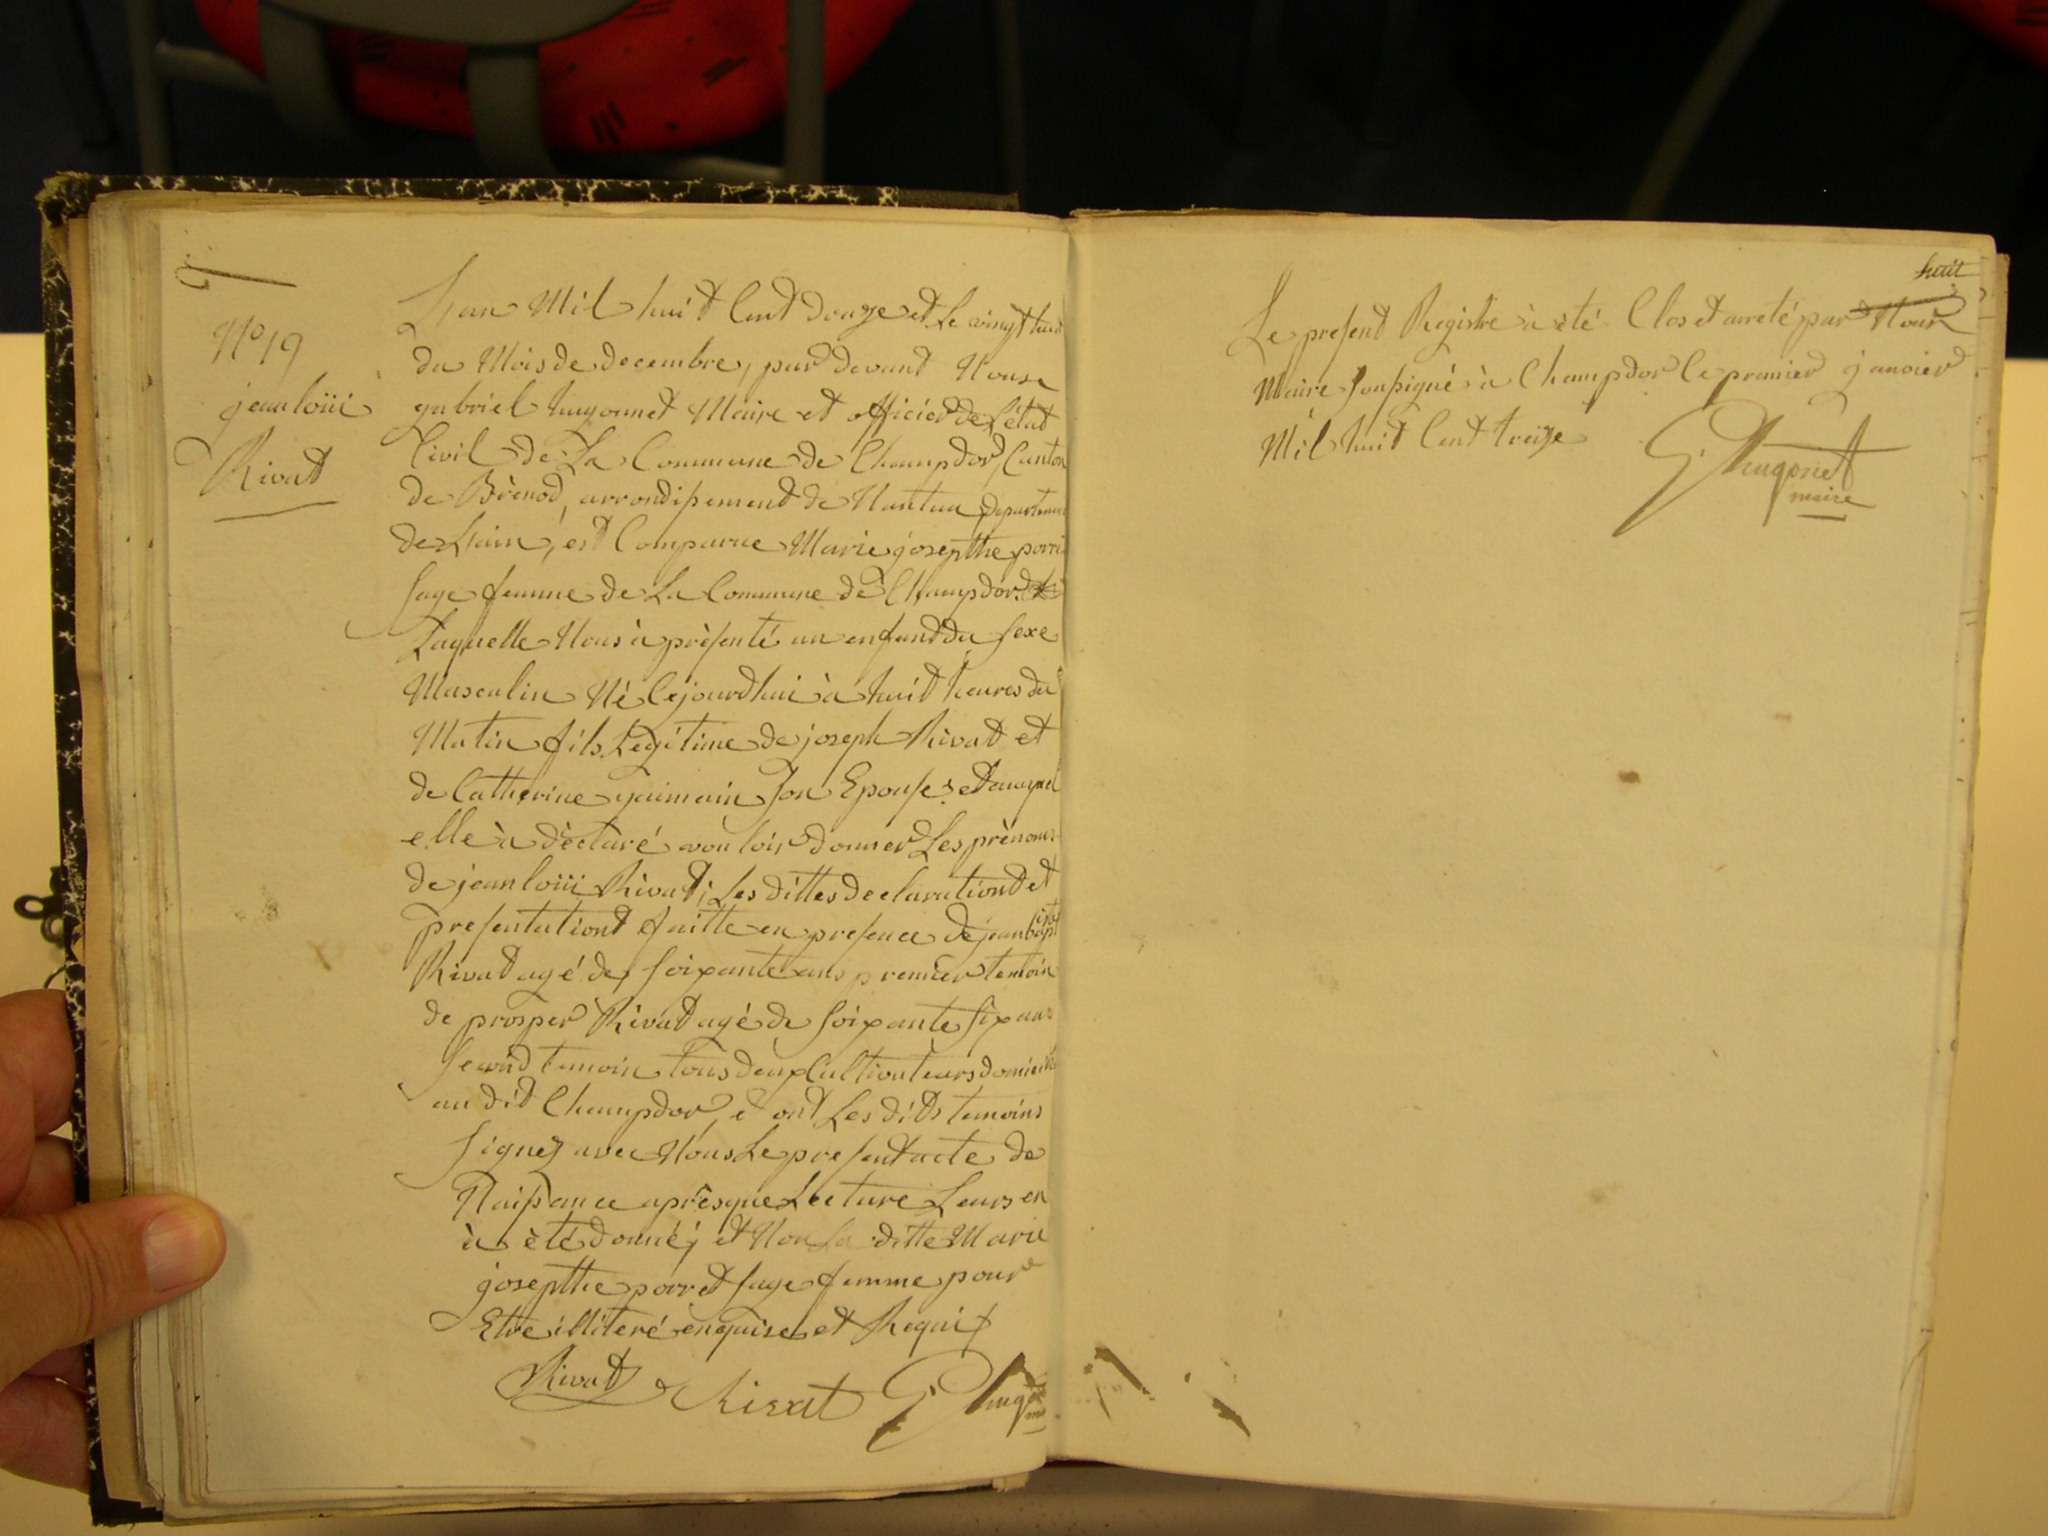 N.º 19
jean loüi
Rivat
Lan Mil huit Cent douze et Le vingt huit
du Mois de decembre, par devant Nous
gabriel hugonnet Maire et officier de L'état
Civil de La Commune de Champdor, Canton
de Brènod, arrondissement de Nantua departement
de Lain, est Comparue Marie josepthe porret
sage femme de La Commune de Champdor
Laquelle Nous à prèsenté un enfand du sexe
Masculin Nè Cejourdhui à huit heures du
Matin fils Legitime de joseph Rivat et
de Catherine yaimain son Epouse, et auquel
elle à dèclaré vouloir donner Les prènoms
de jean loüi Rivat; Les dittes declarationd et
presentationd faitte en presence de jean bapt
Rivat agé de soixante ans premier temoin
de prosper Rivat agé de soixante six ans
second temoin tous deux Cultivateurs domicilié
au dit Champdor, et ont Les dits temoins
signez avec Nous Le present acte de
Naissance aprèsque Lecture Leurs en
à èté donné; et Non la ditte Marie
josepthe porret sage femme pour
Etre illiteré enquise et Requis
Rivat Rivat G. hug
huit
Le present Registre à èté Clos et arreté par Nous
Maire soussigné à Champdor le premier janvier
Mil huit Cent treize
G. hugonet
maire